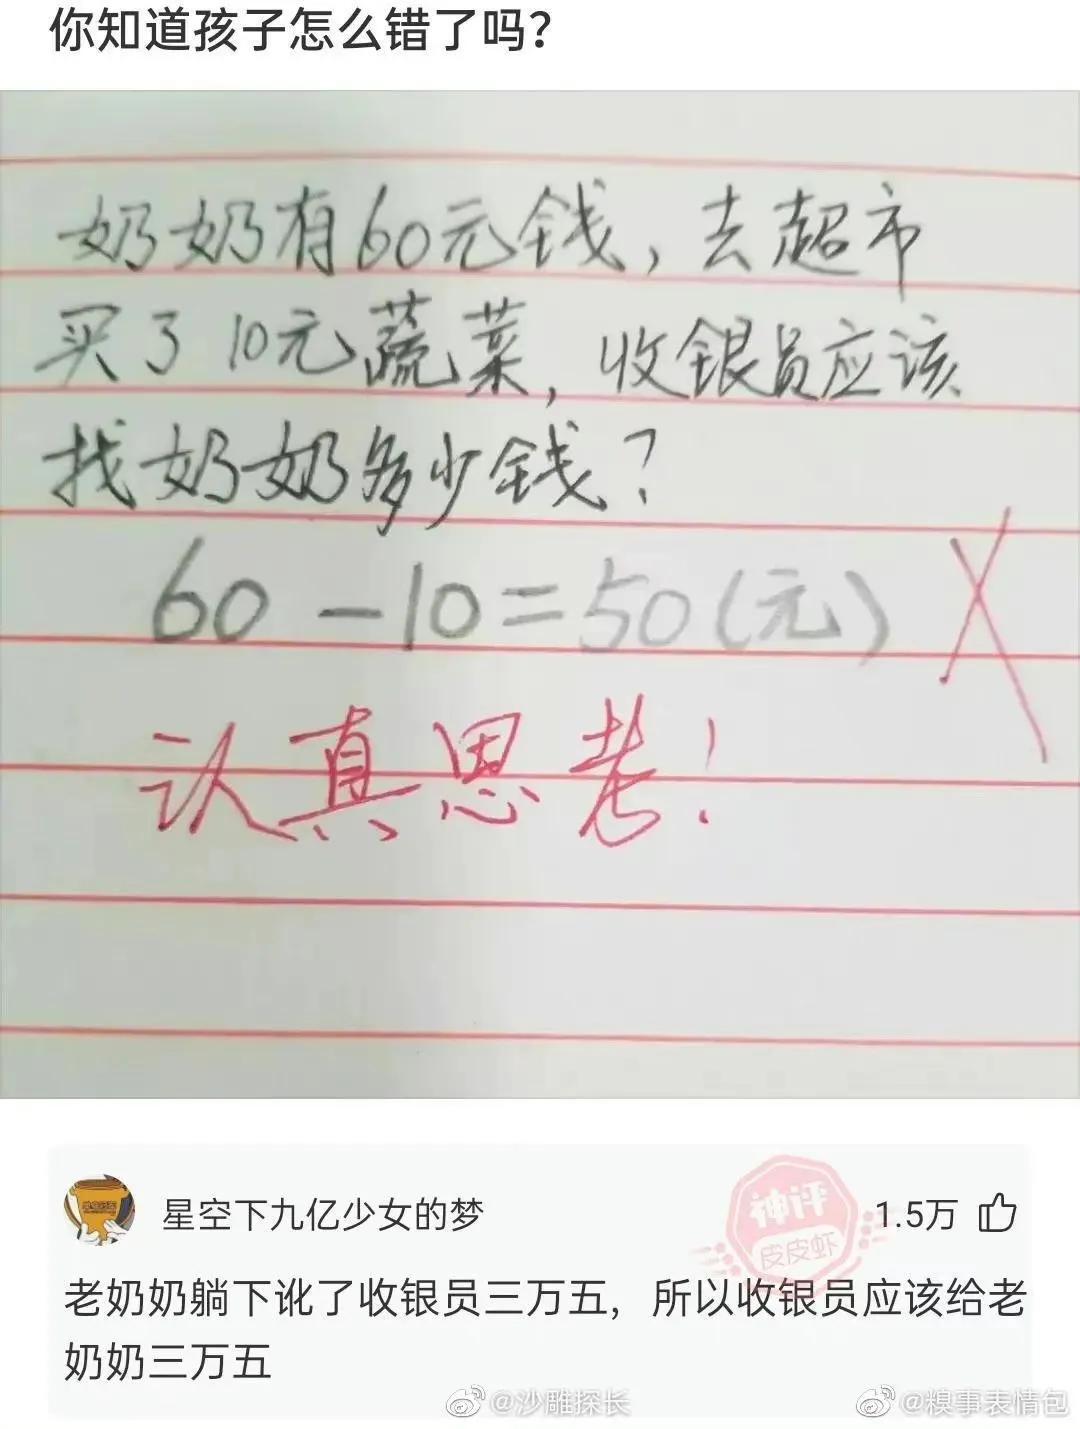 你知道孩子怎么错了吗？
奶奶有60元钱，去超市
买了10元蔬菜，收银员应该
找奶奶多少钱？
60-10=50(元)
认真思考！
星空下九亿少女的梦
神评
皮皮虾
1.5万
老奶奶躺下讹了收银员三万五，所以收银员应该给老
奶奶三万五
@沙雕探长
@糗事表情包